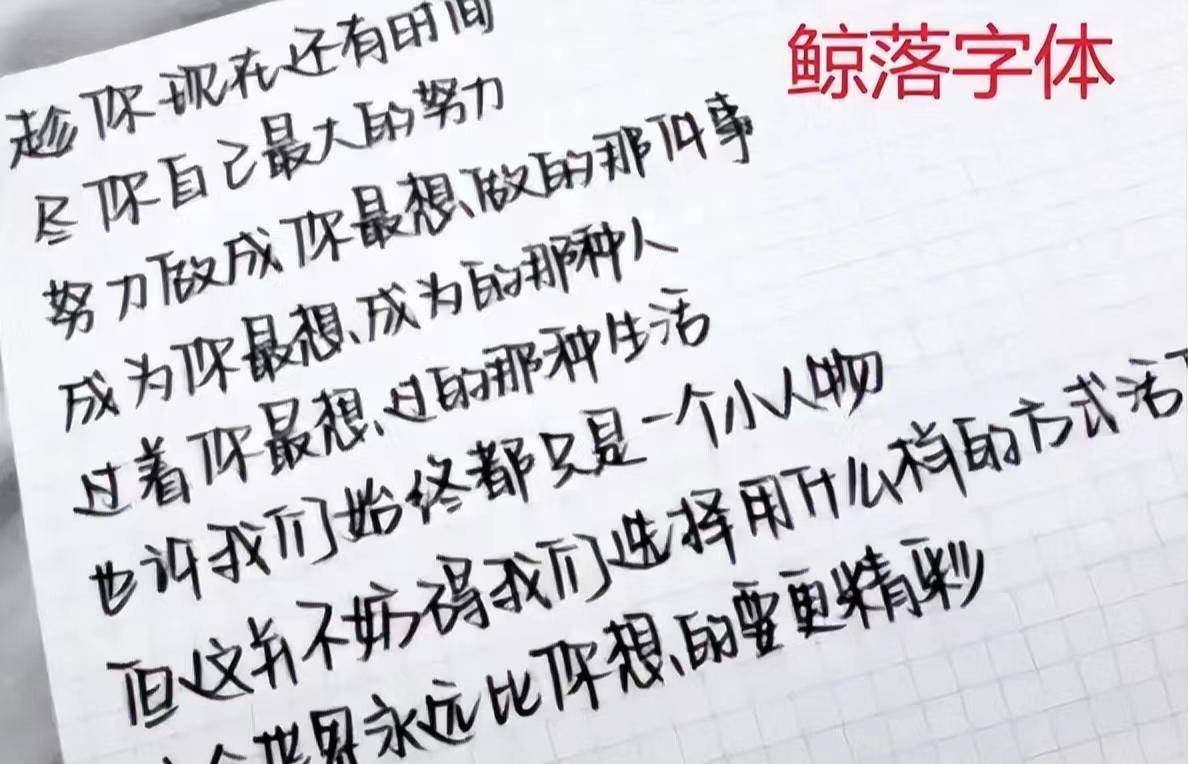 鲸落字体
趁你现在还有时间
尽你自己最大的努力
努力做成你最想做的那件事
成为你最想成为的那种人
过着你最想过的那种生活
也许我们始终都只是一个小人物
但这并不妨碍我们选择用什么样的方式活
个世界永远比你想的要更精彩